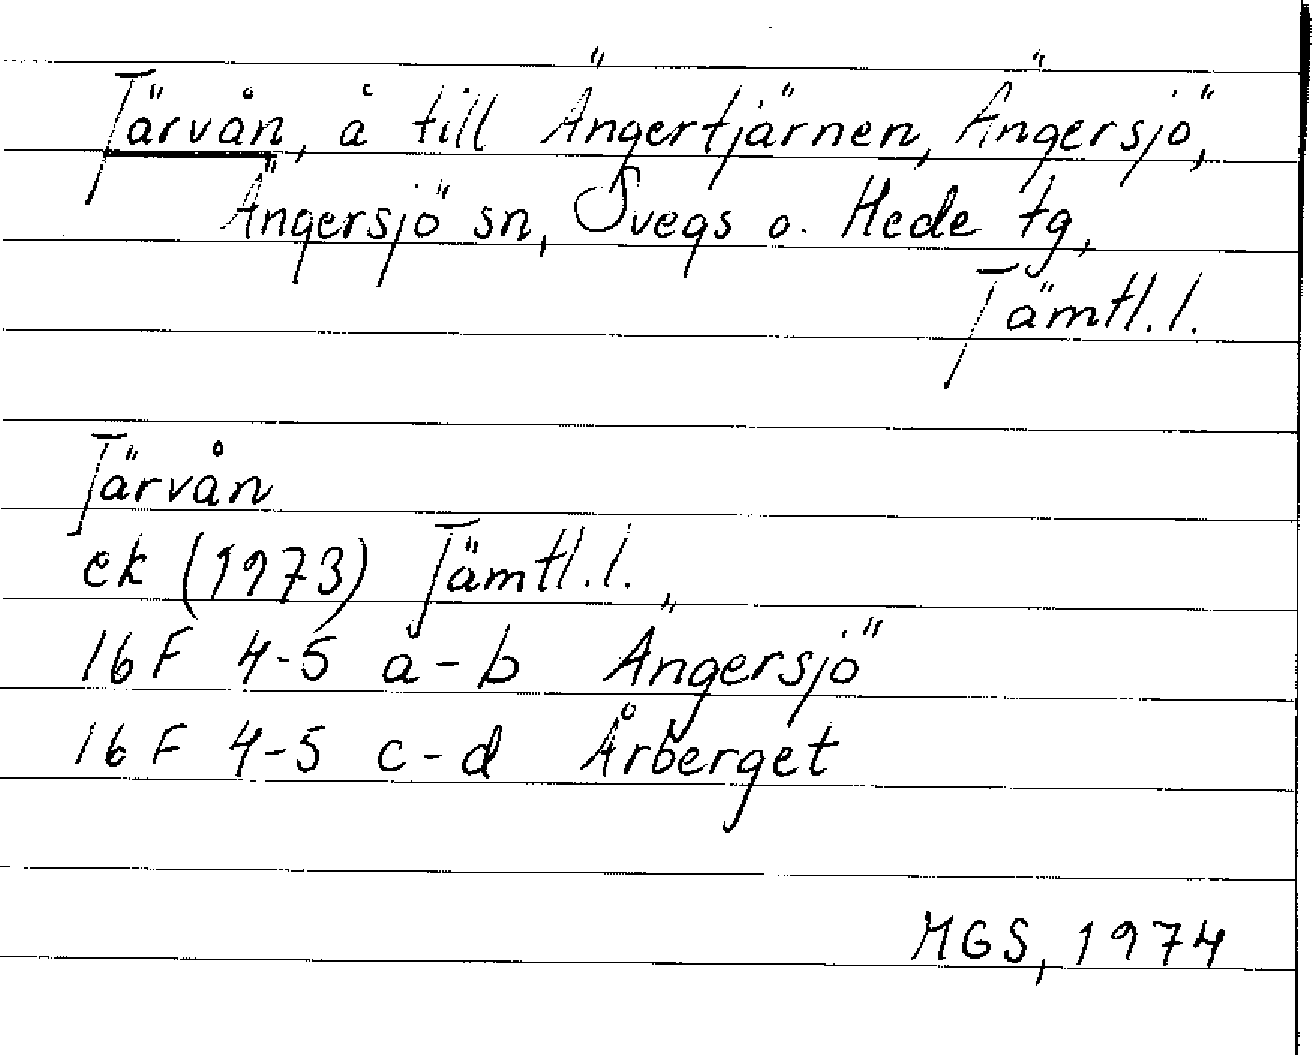 Järvån, å till Ängertjärnen, Ängersjö,
Ängersjö sn, Svegs o. Hede tg,
Jämtl.l.
Järvån
ek (1973) Jämtl.l.
16F 4-5 a-b Ängersjö
16F 4-5 c-d Årberget
MGS, 1974